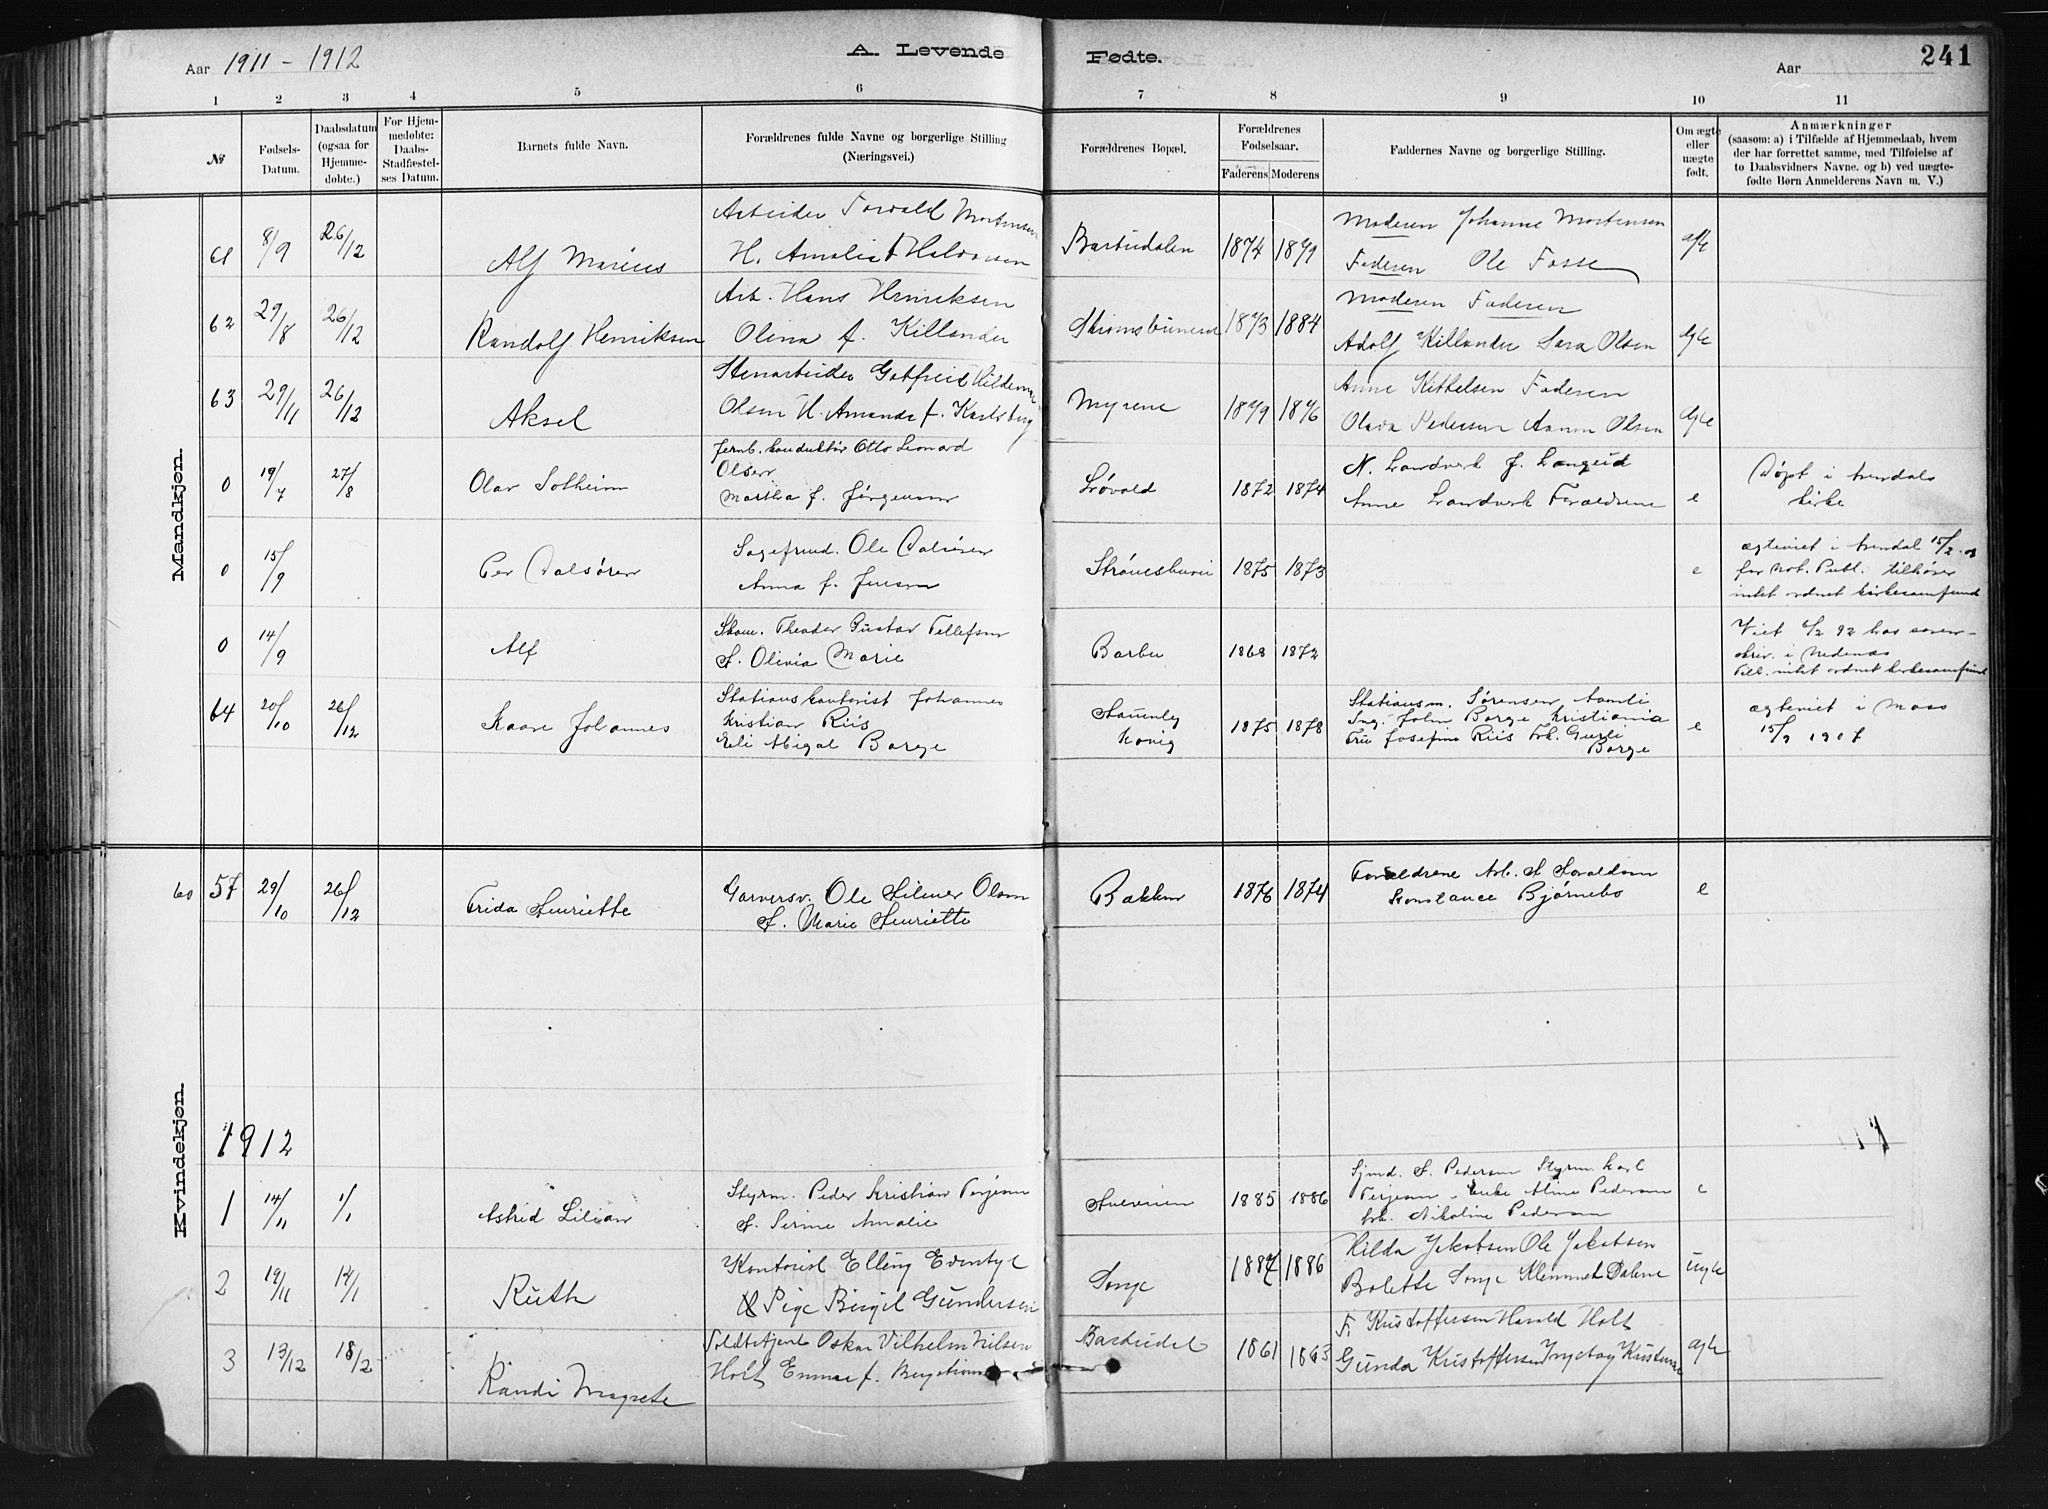 Aar 1911 - 1912
A. Levende
Fødte.
Aar
241
1 2 3 4 5 6 7 8 9 10 11
№
Fødsels-
Datum.
Daabsdatum
(ogsaa for
Hjemme-
døbte.)
For Hjem-
medøbte:
Daabs-
Stadfæstel-
ses Datum.
Barnets fulde Navn.
Forældrenes fulde Navne og borgerlige Stilling
(Næringsvei.)
Forældrenes Bopæl.
Forældrenes
Fødselsaar.
Faderens Moderens
Faddernes Navne og borgerlige Stilling.
Om ægte
eller
uægte
født.
Anmærkninger
(saasom: a) i Tilfælde af Hjemmedaab, hvem
der har forrettet samme, med Tilføielse af
to Daabsvidners Navne. og b) ved uægte-
fødte Børn Anmelderens Navn m. V.)
Mandkjøn.
61 8/9 26/12 Alf Marius
Arbeider Torvald Mortensen
H. Amalia f Halvorsen
Barbudalen 1874 1879
Moderen Johanne Mortensen
Faderen Ole Fosse
62 29/8 26/12 Randolf Henriksen
Arb. Hans Henriksen
Olina f. Killander
1873 1884
Moderen Faderen
Adolf Killander Sara Olsen
63 29/11 26/12 Aksel
Stenarbeider Gotfried
Olsen H. Amanda f. Karlsberg
Myrene 1879 1876
Anne Kittelsen Faderen
Olava Pedersen Olsen
0 19/7 27/8 Olav Solheim
Jernb. konduktør Otto Leonard
Olsen
Martha f. Jørgensen
Løvold 1872 1874
N. Landverk J. Langeid
Anne Landverk Forældrene
e
Døpt i Arendals
kirke
0 15/9 Per Dalsøren
Ole Dalsøren
Anna f. Jensen
1875 1873
e
ægteviet i Arendal 15/2
for Not. Publ. tilhører
intet ordnet kirkesamfund
0 14/9 Alf
Skom. Theodor Gustav Tellefsen
H. Olivia Marie
Barbu 1868 1872
Viet 6/2 92 hos soren-
skriv. i Nedenæs
Till. intet ordnet kirkesamfund
64 20/10 26/12 Kaare Johannes
Stationskontorist Johannes
Kristian Riis
Abigal Borge
1875 1878
Stationsm. Sørensen Aamli
Ing. John Borge Kristiania
Fru Josefine Riis Frk.
Borge
e
ægteviet i Moss
15/9 1907
Kvindekjøn.
60 57 29/10 26/12 Frida Henriette
Garversv. Ole Hilmer Olsen
H. Marie Henriette
Bakken 1876 1874
Forældrene Arb.
Konstance Bjørnebo
e
1912
1 14/11 1/1 Astrid Lilian
Styrm. Peder Kristian Terjesen
H. Serine Amalie
1885 1886
Sjmd. Pedersen Styrm. Karl
Terjesen Enke Aline Pedersen
frk. Nikoline Pedersen
e
2 19/11 14/1 Ruth
Kontorist Elling
Pige Birgit Gundersen
Songe 1887 1886
Hilda Jakobsen Ole Jakobsen
Bolette Songe Klemmet Dalene
3 13/12 18/2 Randi Magrete
Toldbetjent Oskar Vilhelm Nilsen
Holt Emma f. Bergstrøm
Barbudal 1861 1863
F. Kristoffersen Harald Holt
Gunda Kristoffersen Ingeborg